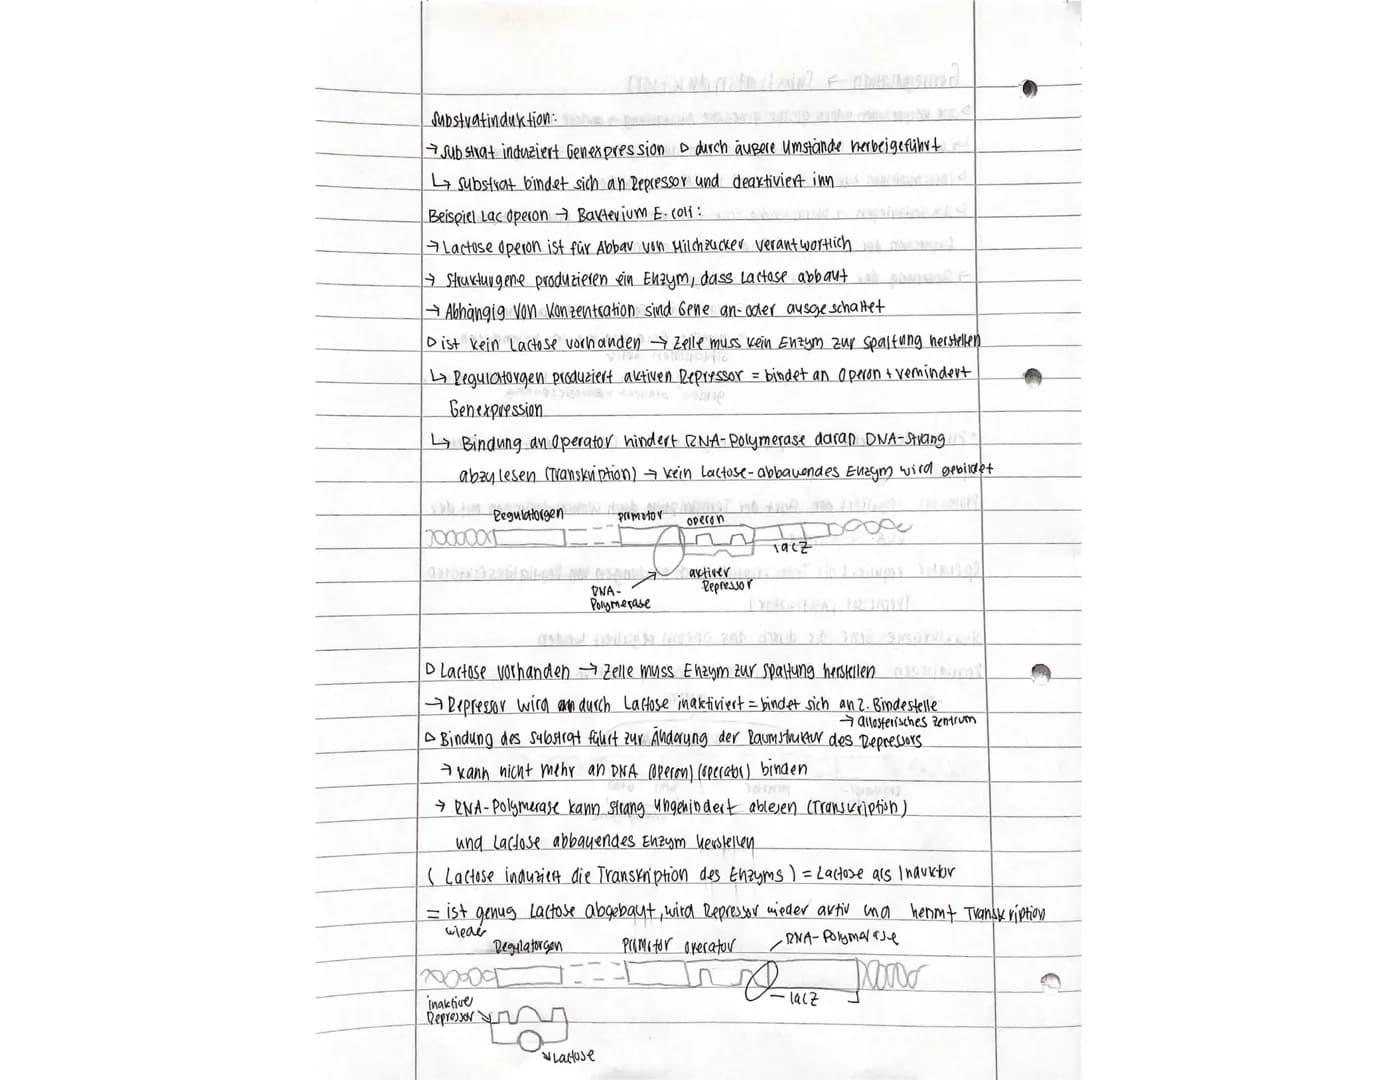 Substratinduktion:
→ Substrat induziert Genexpression ▷ durch äußere Umstände herbeigeführt
↳ Substrat bindet sich an Repressor und deaktiviert ihn
Beispiel Lac Operon → Bakterium E. coli:
→ Lactose Operon ist für Abbau von Milchzucker verantwortlich
→ Strukturgene produzieren ein Enzym, dass Lactose abbaut
→ Abhängig von Konzentration sind Gene an- oder ausgeschaltet
▷ ist kein Lactose vorhanden → Zelle muss kein Enzym zur Spaltung herstellen
↳ Regulatorgen produziert aktiven Repressor = bindet an Operon + vermindert
Genexpression
↳ Bindung an Operator hindert RNA-Polymerase daran DNA-Strang
abzulesen (Transkription) → kein Lactose-abbauendes Enzym wird gebildet
Regulatorgen promotor operon
lacZ
aktiver
Repressor
RNA-
Polymerase
▷ Lactose vorhanden → Zelle muss Enzym zur Spaltung herstellen
→ Repressor wird durch Lactose inaktiviert = bindet sich an 2. Bindestelle
→ allosterisches Zentrum
▷ Bindung des Substrat führt zur Änderung der Raumstruktur des Repressors
→ kann nicht mehr an DNA (Operon) (Operator) binden
→ RNA-Polymerase kann Strang ungehindert ablesen (Transkription)
und Lactose abbauendes Enzym herstellen
( Lactose induziert die Transkription des Enzyms ) = Lactose als Induktor
= ist genug Lactose abgebaut, wird Repressor wieder aktiv und hemmt Transkription
wieder
Regulatorgen Promotor operator RNA-Polymerase
lacZ
inaktiver
Repressor
Lactose